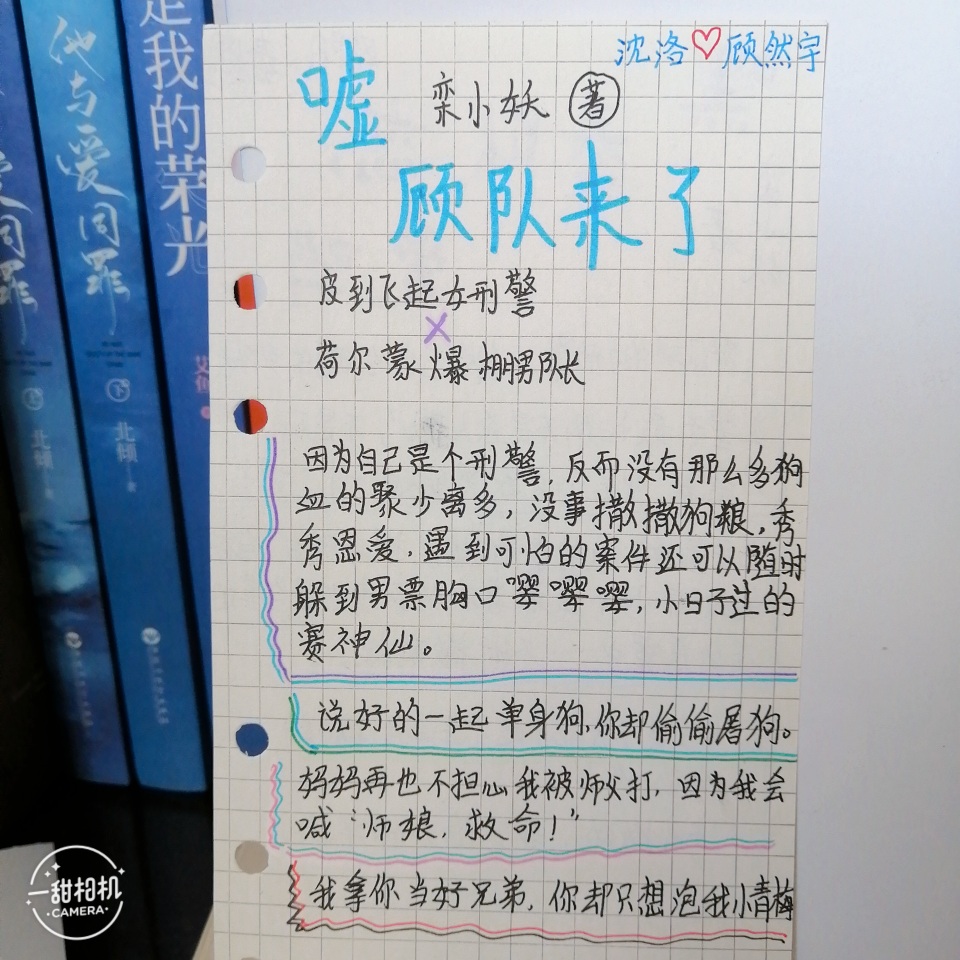 沈洛♡顾然宇
嘘
栾小妖 著
顾队来了
皮到飞起女刑警
×
荷尔蒙爆棚男队长
因为自己是个刑警,反而没有那么多狗
血的聚少离多,没事撒撒狗粮,秀
秀恩爱,遇到可怕的案件还可以随时
躲到男票胸口嘤嘤嘤,小日子过的
赛神仙。
说好的一起单身狗,你却偷偷屠狗。
妈妈再也不担心我被师父打,因为我会
喊“师娘,救命!”
我拿你当好兄弟,你却只想泡我小青梅
是我的荣光
他与爱同罪
下
北倾 著
爱同罪
上
北倾 著
一甜相机
CAMERA